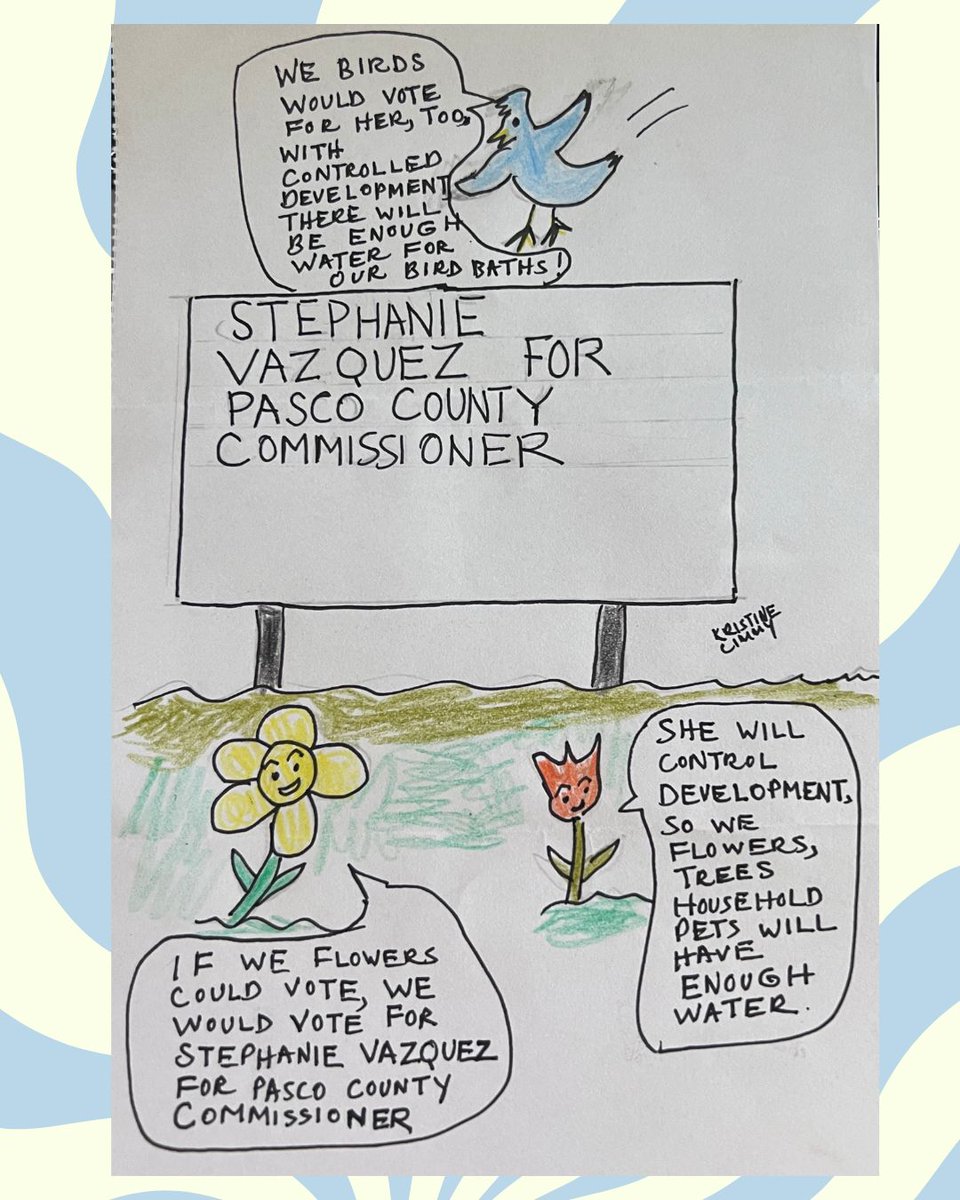 WE BIRDS
WOULD VOTE
FOR HER, TOO,
WITH
CONTROLLED
DEVELOPMENT
THERE WILL
BE ENOUGH
WATER FOR
OUR BIRD BATHS!
STEPHANIE
VAZQUEZ FOR
PASCO COUNTY
COMMISSIONER
KRISTINE
CIMMY
SHE WILL
CONTROL
DEVELOPMENT,
SO WE
FLOWERS,
TREES
HOUSEHOLD
PETS WILL
HAVE
ENOUGH
WATER.
IF WE FLOWERS
COULD VOTE, WE
WOULD VOTE FOR
STEPHANIE VAZQUEZ
FOR PASCO COUNTY
COMMISSIONER